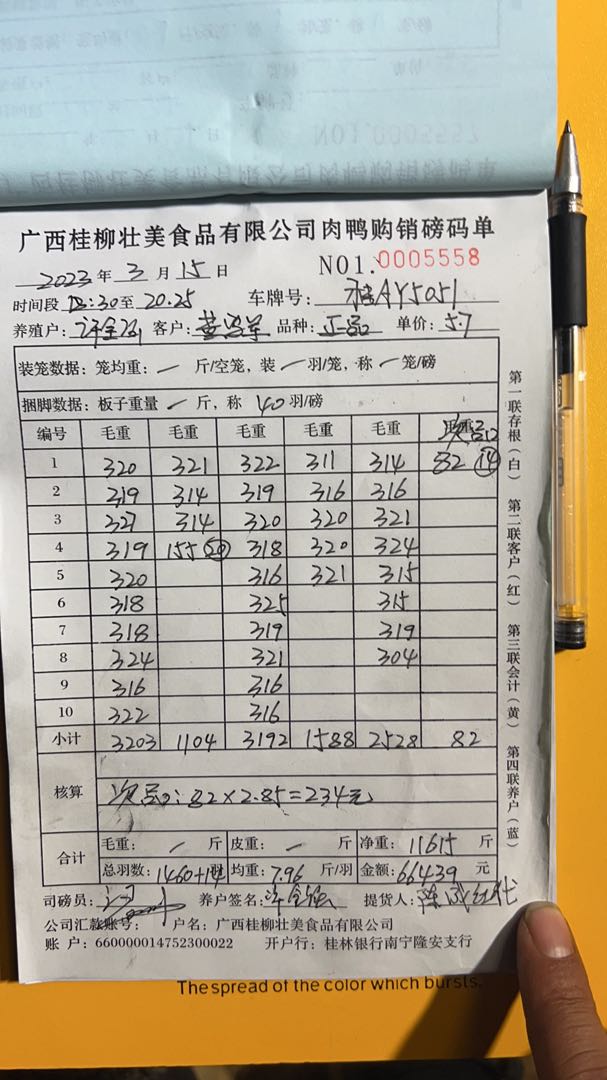 广西桂柳壮美食品有限公司肉鸭购销磅码单
2023 年 3 月 15 日 NO1. 0005558
时间段 :30至 20.25 车牌号: 桂AY5051
养殖户: 客户: 品种: 正品 单价: 5.7
装笼数据: 笼均重: — 斤/空笼, 装 — 羽/笼, 称 — 笼/磅
捆脚数据: 板子重量 — 斤, 称 40 羽/磅
编号 毛重 毛重 毛重 毛重 毛重 次品
1 320 321 322 311 314 82 (14)
2 319 314 319 316 316
3 327 314 320 320 321
4 319 155 (20) 318 320 324
5 320 316 321 315
6 318 325 315
7 318 319 319
8 324 321 304
9 316 316
10 322 316
小计 3203 1104 3192 1588 2528 82
核算 次品: 82×2.85=234元
合计 毛重: — 斤 皮重: — 斤 净重: 11615 斤
总羽数: 1460+14 羽 均重: 7.96 斤/羽 金额: 66439 元
司磅员: 养户签名: 提货人:
公司汇款账号: 户名: 广西桂柳壮美食品有限公司
账 户: 660000014752300022 开户行: 桂林银行南宁隆安支行
第一联存根(白) 第二联客户(红) 第三联会计(黄) 第四联养户(蓝)
The spread of the color which bursts.